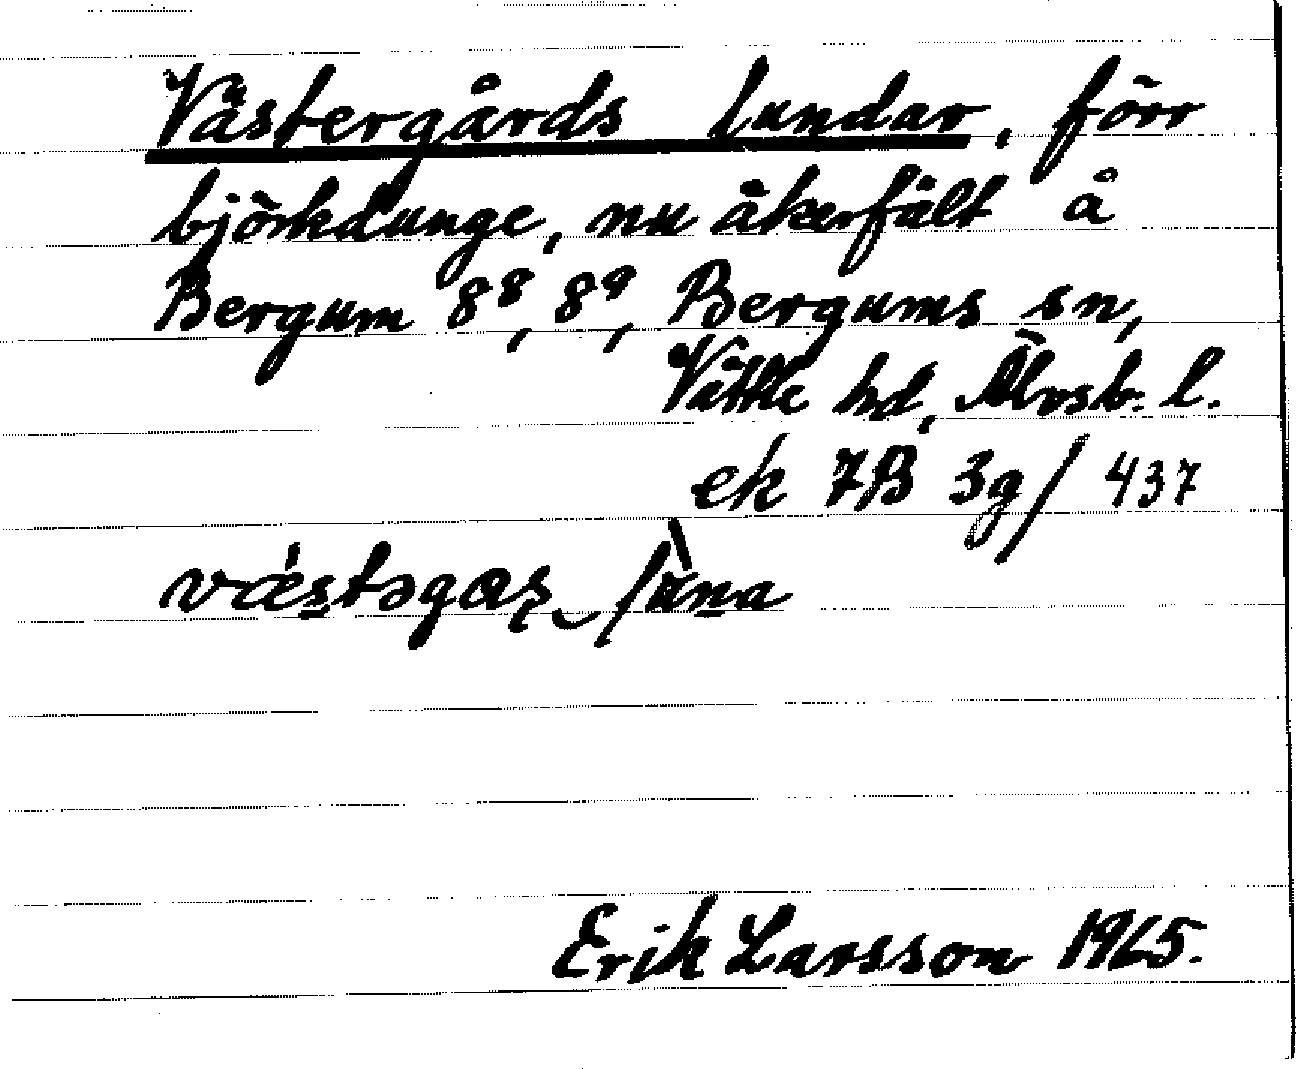 Västergårds lundar, förr
björkdunge, nu åkerfält å
Bergum 8⁸, 8⁹, Bergums sn,
Vättle hd, Älvsb. l.
ek 7B 3g/437
væ̀stəgaʂ lùna
Erik Larsson 1965.